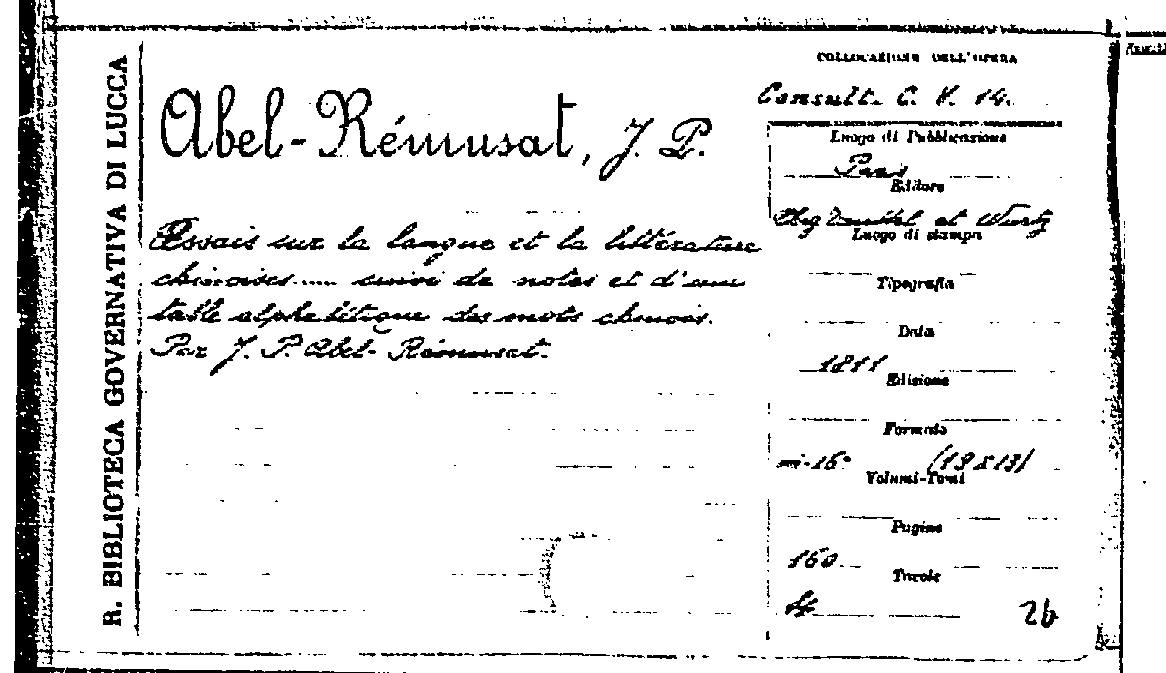 R. BIBLIOTECA GOVERNATIVA DI LUCCA
Abel-Rémusat, J. P.
Essais sur la langue et la littérature
chinoises.... suivi de notes et d'une
table alphabétique des mots chinois.
Par J. P. Abel-Rémusat.
COLLOCAZIONE DELL'OPERA
Consult. C. V. 14.
Luogo di Pubblicazione
Paris
Editore
et Wurtz
Luogo di stampa
Tipografia
Data
1811
Edizione
Formato
in-16° (19x13)
Volumi-Tomi
Pagine
160
Tavole
4
26